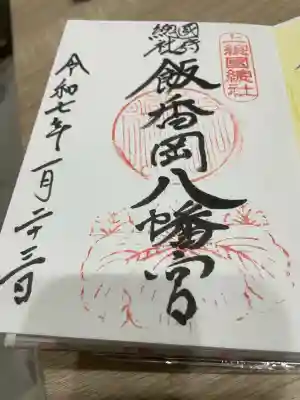 上總國總社
國府
總社
飯香岡八幡宮
令和七年一月二十三日